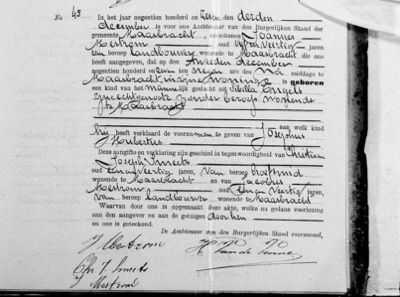 No 45 In het jaar negentien honderd en zeven den derden
december is voor ons Ambtenaar van den Burgerlijken Stand der
gemeente Maarbracht verschenen Joannes
Mestrom oud vijfenveertig jaren
van beroep landbouwer wonende te Maarbracht die ons
heeft aangegeven, dat op den tweeden december
negentien honderd en zeven ten negen ure des middags te
Maarbracht in zijne woning is geboren
een kind van het mannelijk geslacht uit Sibilla Engels
zijne echtgenoote zonder beroep wonende
te Maarbracht
aan welk kind
hij heeft verklaard de voornamen te geven van Josephus
Hubertus
Deze aangifte en verklaring zijn geschied in tegenwoordigheid van Christiaan
Joseph Smeets
oud veertig jaren, van beroep
wonende te Maarbracht en van Jacobus
Mestrom oud veertig jaren,
van beroep landbouwer wonende te Maarbracht
Waarvan door ons is opgemaakt deze akte, welke na gedane voorlezing
aan den aangever en aan de getuigen door hen en ons
en ons is geteekend.
De Ambtenaar van den Burgerlijken Stand voornoemd,
J Mestrom
Chr. J. Smeets
Mestrom